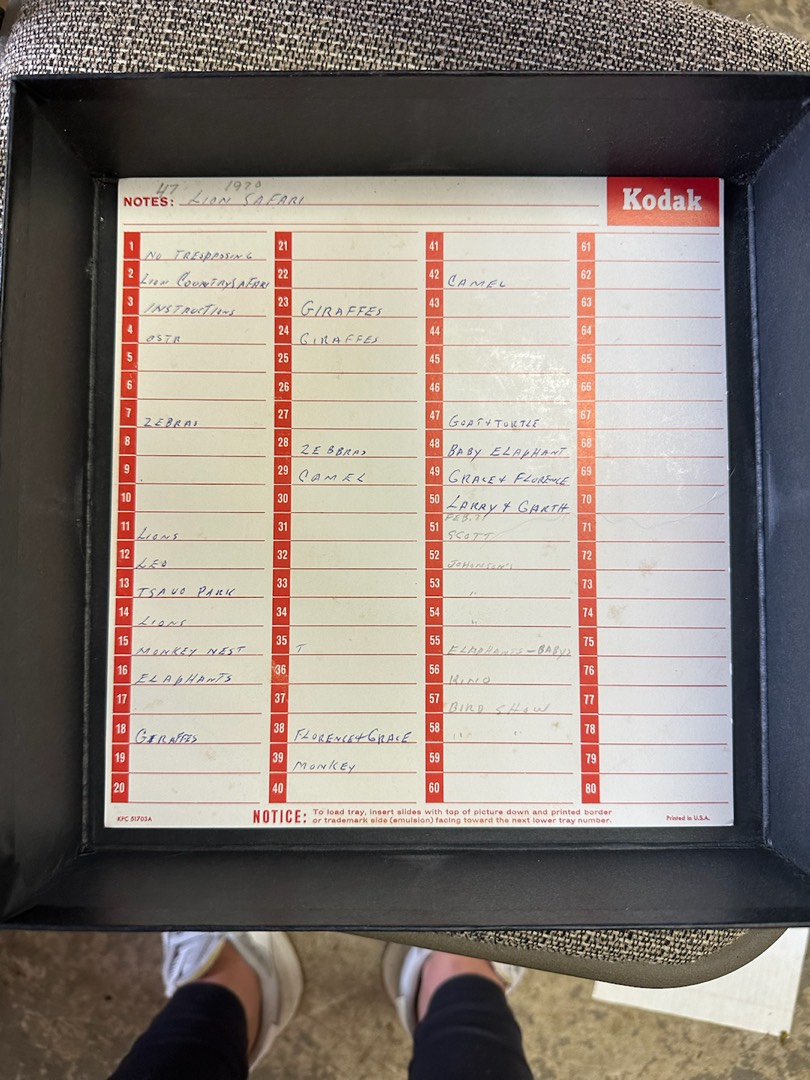 47 1970
NOTES: LION SAFARI
Kodak
1 NO TRESPASSING
2 LION COUNTRYSAFARI
3 INSTRUCTIONS
4 OSTR
5
6
7 ZEBRAS
8
9
10
11 LIONS
12 LEO
13 TSAVO PARK
14 LIONS
15 MONKEY NEST
16 ELAPHANTS
17
18 GIRAFFES
19
20
21
22
23 GIRAFFES
24 GIRAFFES
25
26
27
28 ZEBBRAS
29 CAMEL
30
31
32
33
34
35 T
36
37
38 FLORENCE & GRACE
39 MONKEY
40
41
42 CAMEL
43
44
45
46
47 GOAT & TURTLE
48 BABY ELAPHANT
49 GRACE & FLORENCE
50 LARRY & GARTH
FEB. 71
51 SCOTT
52 JOHONSON'S
53 "
54 "
55 ELAPHANTS - BABYS
56 RINO
57 BIRD SHOW
58 " "
59
60
61
62
63
64
65
66
67
68
69
70
71
72
73
74
75
76
77
78
79
80
KPC 51703A
NOTICE: To load tray, insert slides with top of picture down and printed border
or trademark side (emulsion) facing toward the next lower tray number.
Printed in U.S.A.